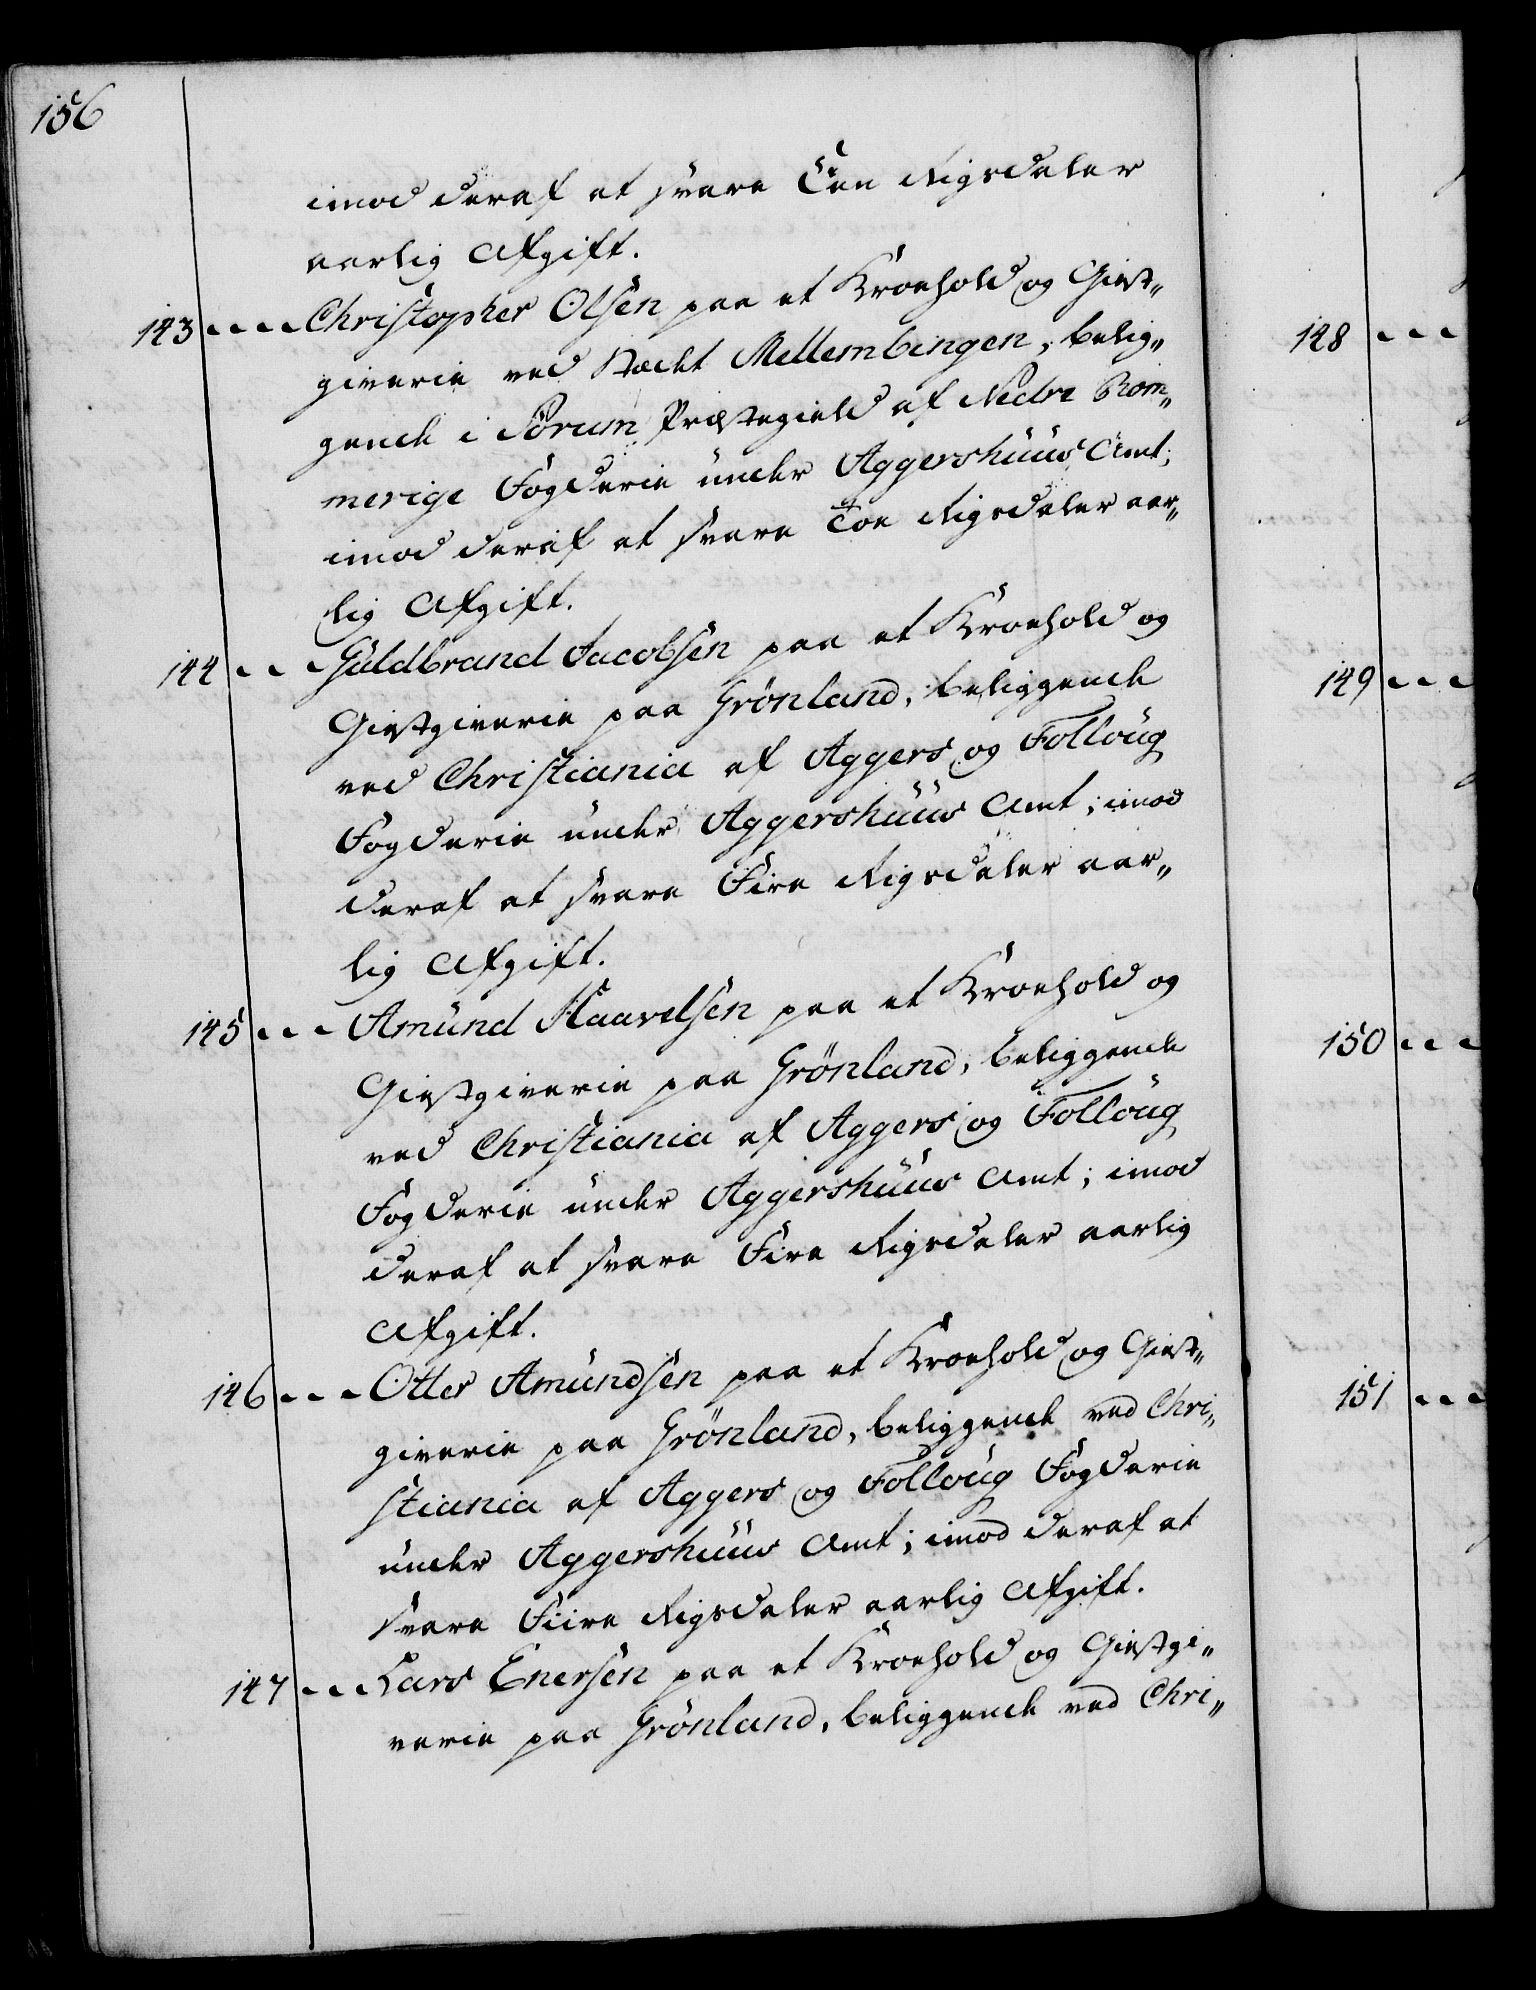 156
imod deraf at svare Een Rigsdaler
aarlig Afgift.
143 Christopher Olsen paa et Kroehold og Giest„
giverie ved Stædet Mellembingen, belig„
gende i Sørum Præstegield af Nedre Rom„
merige Fogderie under Aggershuus Amt;
imod deraf at svare Toe Rigsdaler aar„
lig Afgift.
144 Guldbrand Jacobsen paa et Kroehold og
Giestgiverie paa Grönland, beliggende
ved Christiania af Aggers og Folloug
Fogderie under Aggershuus Amt; imod
deraf at svare Fire Rigsdaler aar„
lig Afgift.
145 Amund Haavelsen paa et Kroehold og
Giestgiverie paa Grönland, beliggende
ved Christiania af Aggers og Folloug
Fogderie under Aggershuus Amt; imod
deraf at svare Fire Rigsdaler aarlig
Afgift.
146 Otter Amundsen paa et Kroehold og Giest„
giverie paa Grönland, beliggende ved Chri„
stiania af Aggers og Folloug Fogderie
under Aggershuus Amt; imod deraf at
svare Fiire Rigsdaler aarlig Afgift.
147 Lars Enersen paa et Kroehold og Giestgi„
verie paa Grönland, beliggende ved Chri„
148
149
150
151